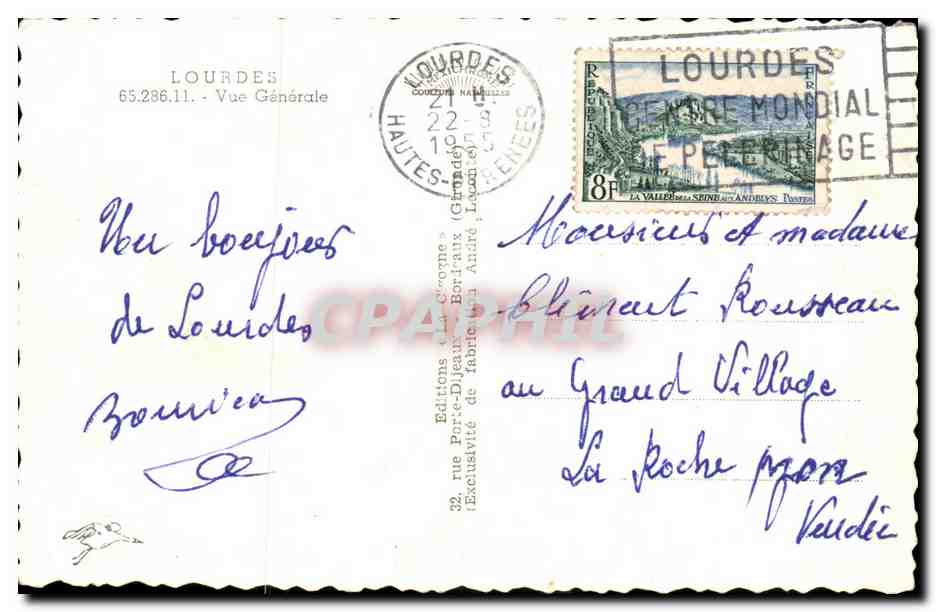 LOURDES
65.286.11. - Vue Générale
LOURDES
COULEURS NATURELLES
21 H
22-8
1955
HAUTES-PYRENEES
REPUBLIQUE FRANÇAISE
8F
LA VALLÉE DE LA SEINE AUX ANDELYS POSTES
LOURDES
CENTRE MONDIAL
DE PELERINAGE
Un bonjour
de Lourdes
Editions « La Cigogne »
32, rue Porte-Dijeaux Bordeaux (Gironde)
(Exclusivité de fabrication André Leconte)
CPAPHIL
Monsieur et madame
Clément Rousseau
au Grand Village
La Roche s/yon
Vendée